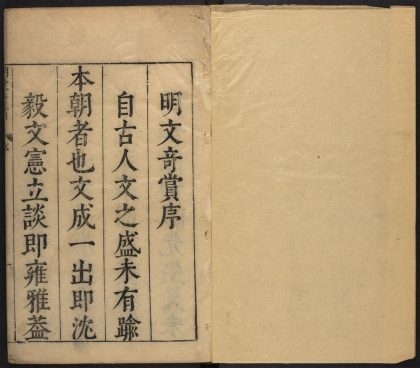 明文奇賞序
自古人文之盛未有踰
本朝者也文成一出即沈
毅文憲立談即雍雅葢